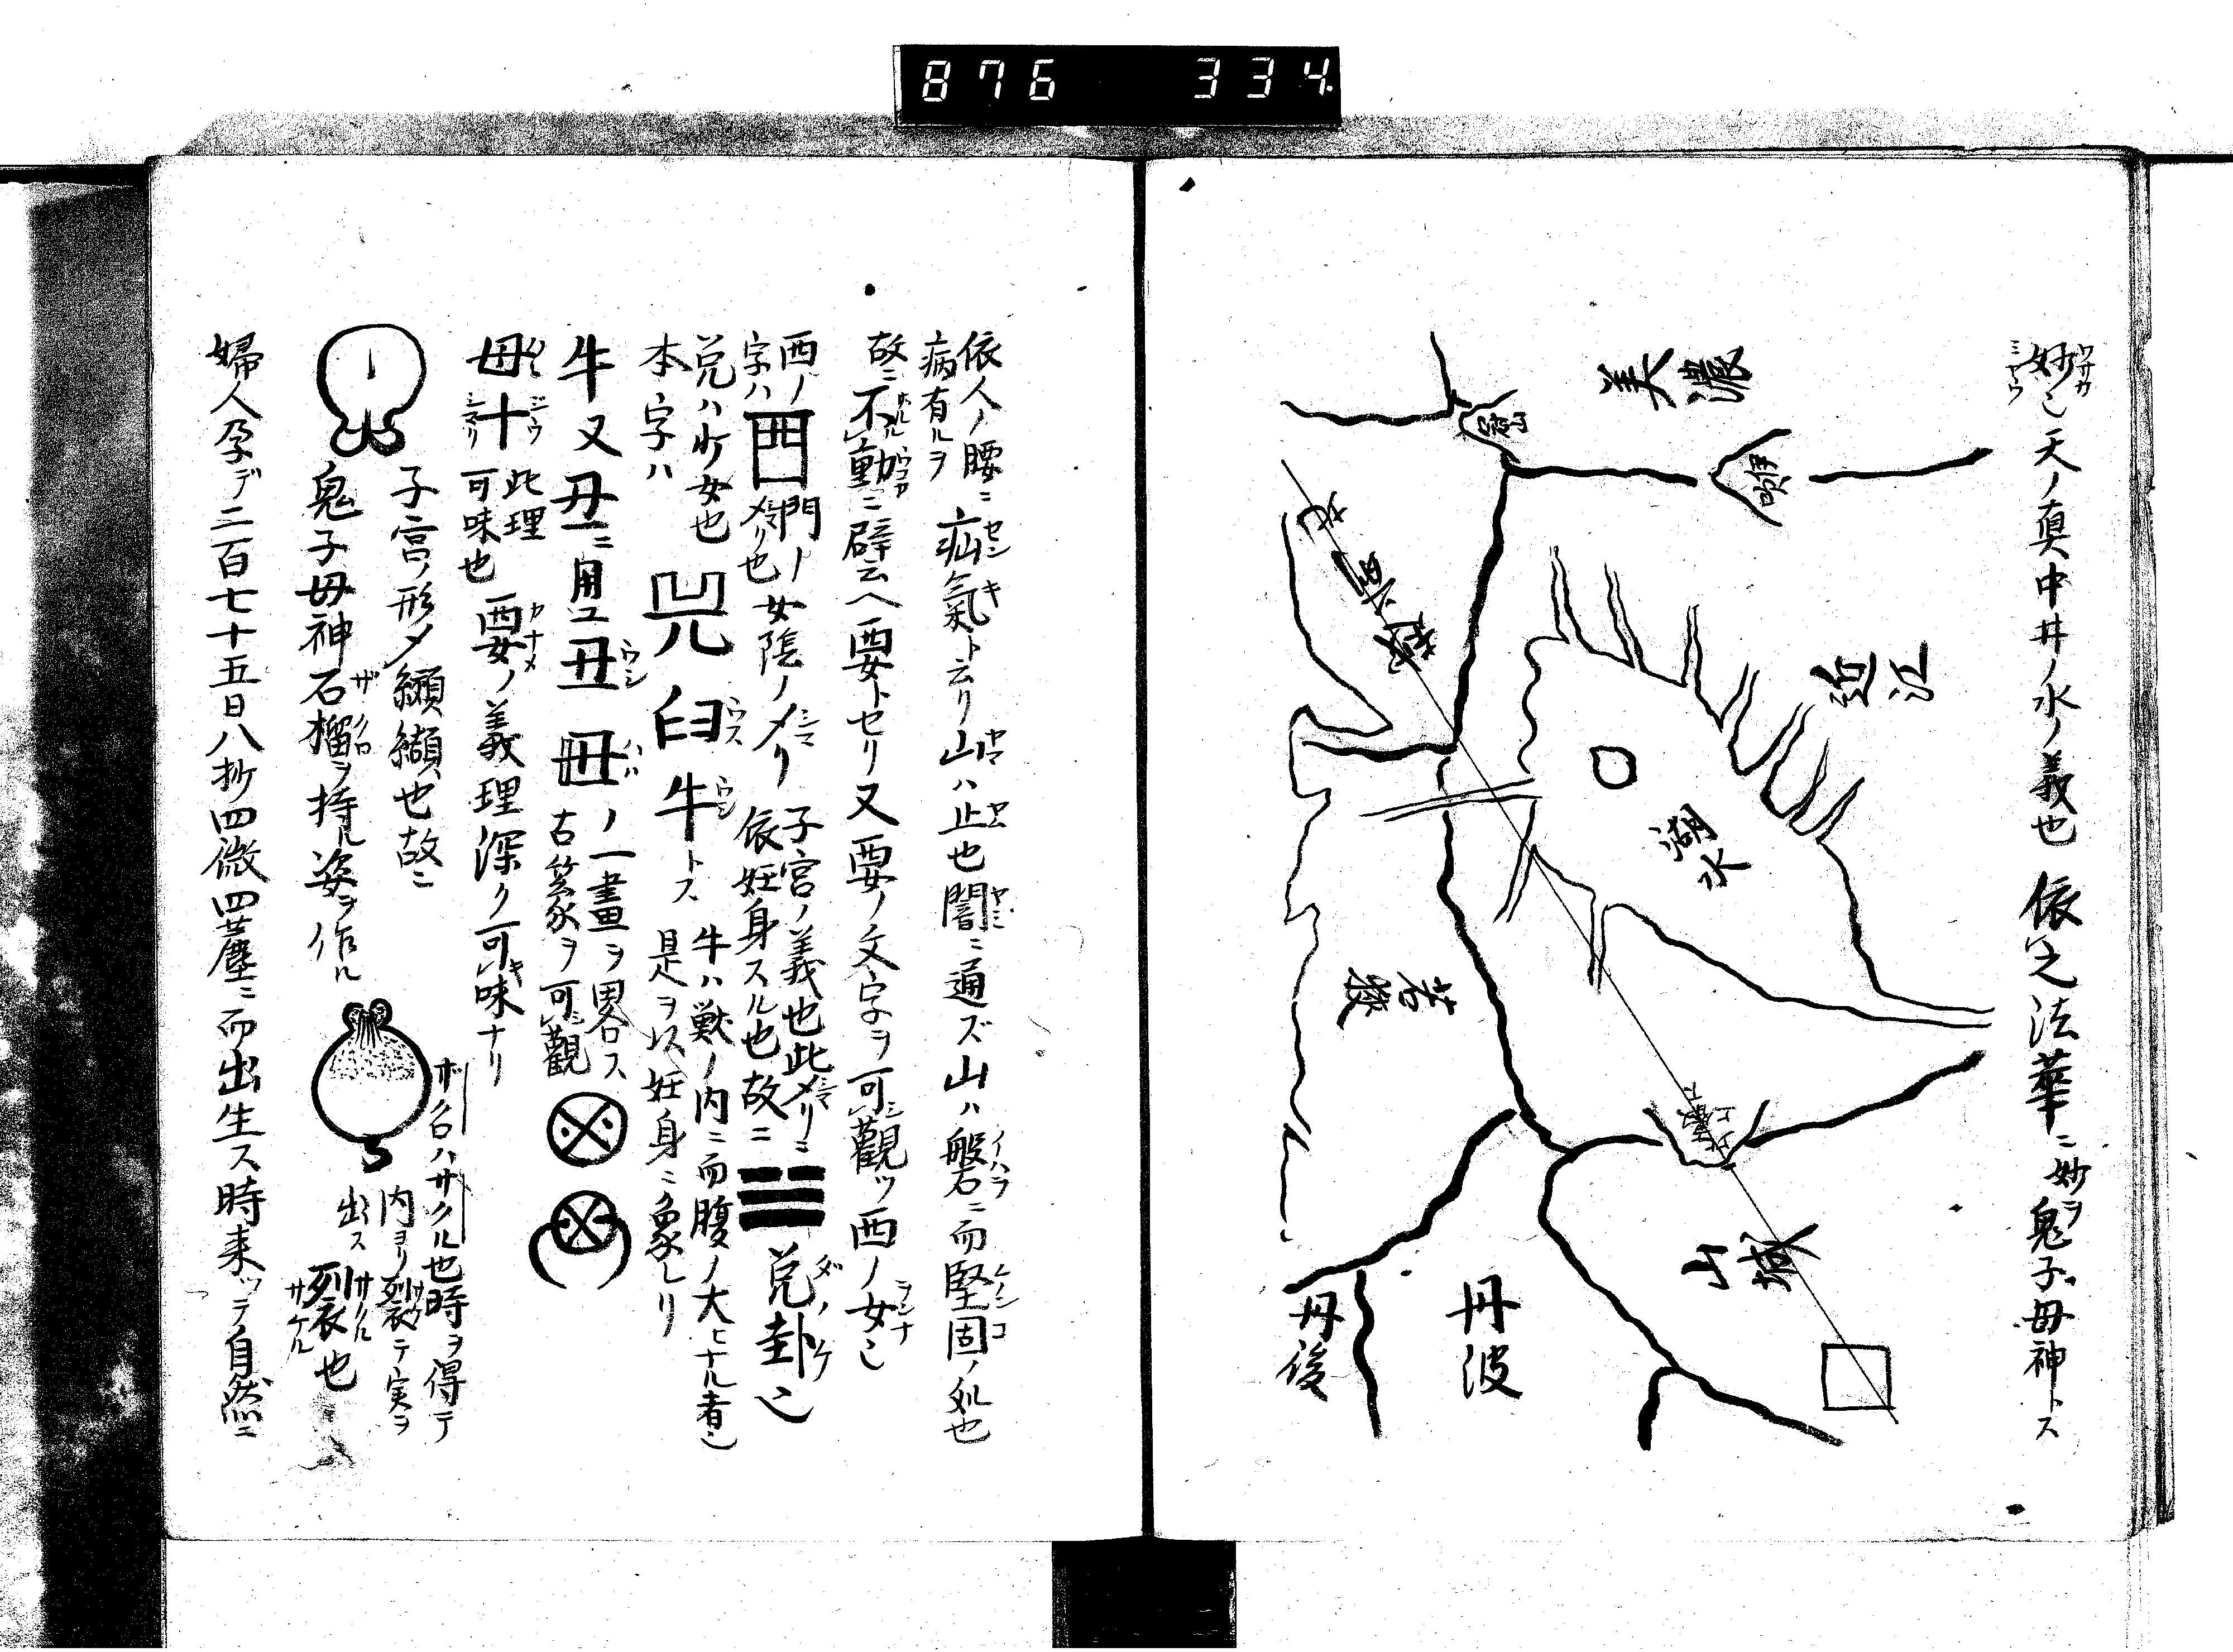 876 334
妙ハ天ノ真中井ノ水ノ義也依之法華ニ妙ヲ鬼子母神トス
ワサカ
ミヤウ
美濃
伊吹
近江
湖水
越前
若狭
山城
丹波
丹後
依人ノ腰ニ疝氣ト云リ山ハ止也闇ニ通ズ山ハ磐ニ而堅固ノ処也
病有ルヲ
故ニ不動ニ譬云ヘ要トセリ又要ノ文字ヲ可觀ツ西ノ女
西ノ字ハ
門ノ〆リ也
女陰ノ〆リ
子宮ノ義也此〆リニ
依妊身スル也故ニ☱兌ノ卦
兌ハ少女也
本字ハ
臼牛トス
牛ハ獣ノ内ニ而腹ノ大ヒナル者
是ヲ以妊身ニ象レリ
牛又丑ニ用ユ丑
ノ一畫ヲ畧ス
古篆ヲ可觀
母十
此理
可味也
要ノ義理深ク可味ナリ
子宮ノ形〆纐纈也故ニ
鬼子母神石榴ヲ持ル姿ヲ作ル
ザクロハサクル也時ヲ得テ
内ヨリ裂テ実ヲ
出ス
裂也
婦人孕デ二百七十五日八抄四微四塵ニ而出生ス時来ツテ自然ニ